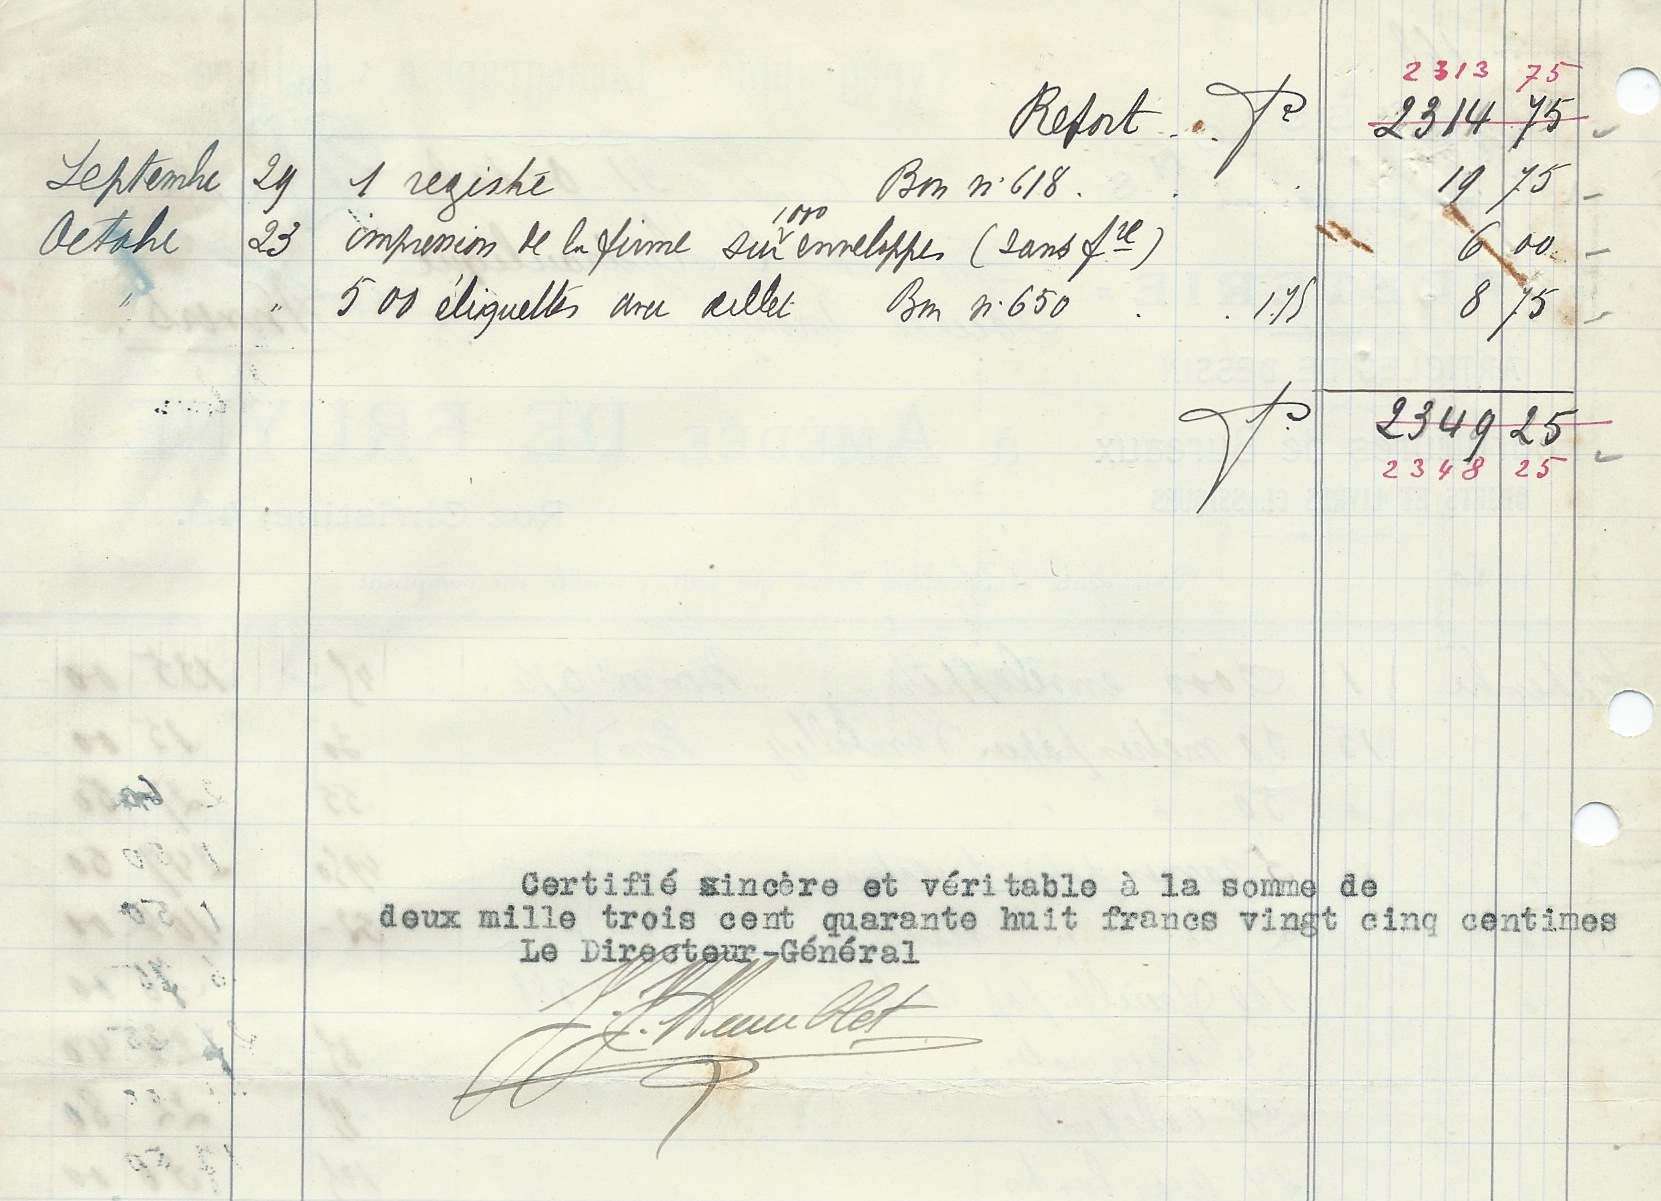 2313 75
Report . . Fr 2314 75
Septembre 29 1 registre Bon n° 618 . . . 19 75
Octobre 23 impression de la firme sur 1000 enveloppes (sans fre) 6 00
" " 500 étiquettes avec œillet Bon n° 650 . . 1.75 8 75
Fr 2349 25
2348 25
Certifié sincère et véritable à la somme de
deux mille trois cent quarante huit francs vingt cinq centimes
Le Directeur-Général